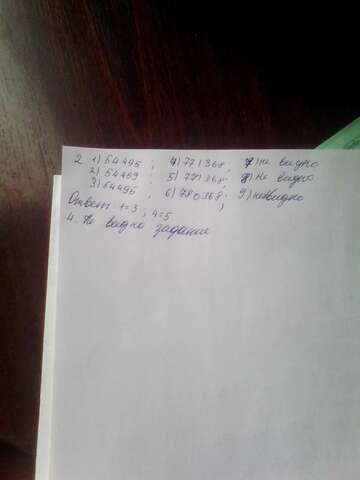 2. 1) 64495 ; 4) 771368; 7) не видно
2) 64469 ; 5) 771368; 8) не видно
3) 64495 ; 6) 780168; 9) невидно
Ответ: 1=3 , 4=5
4. Не видно задание